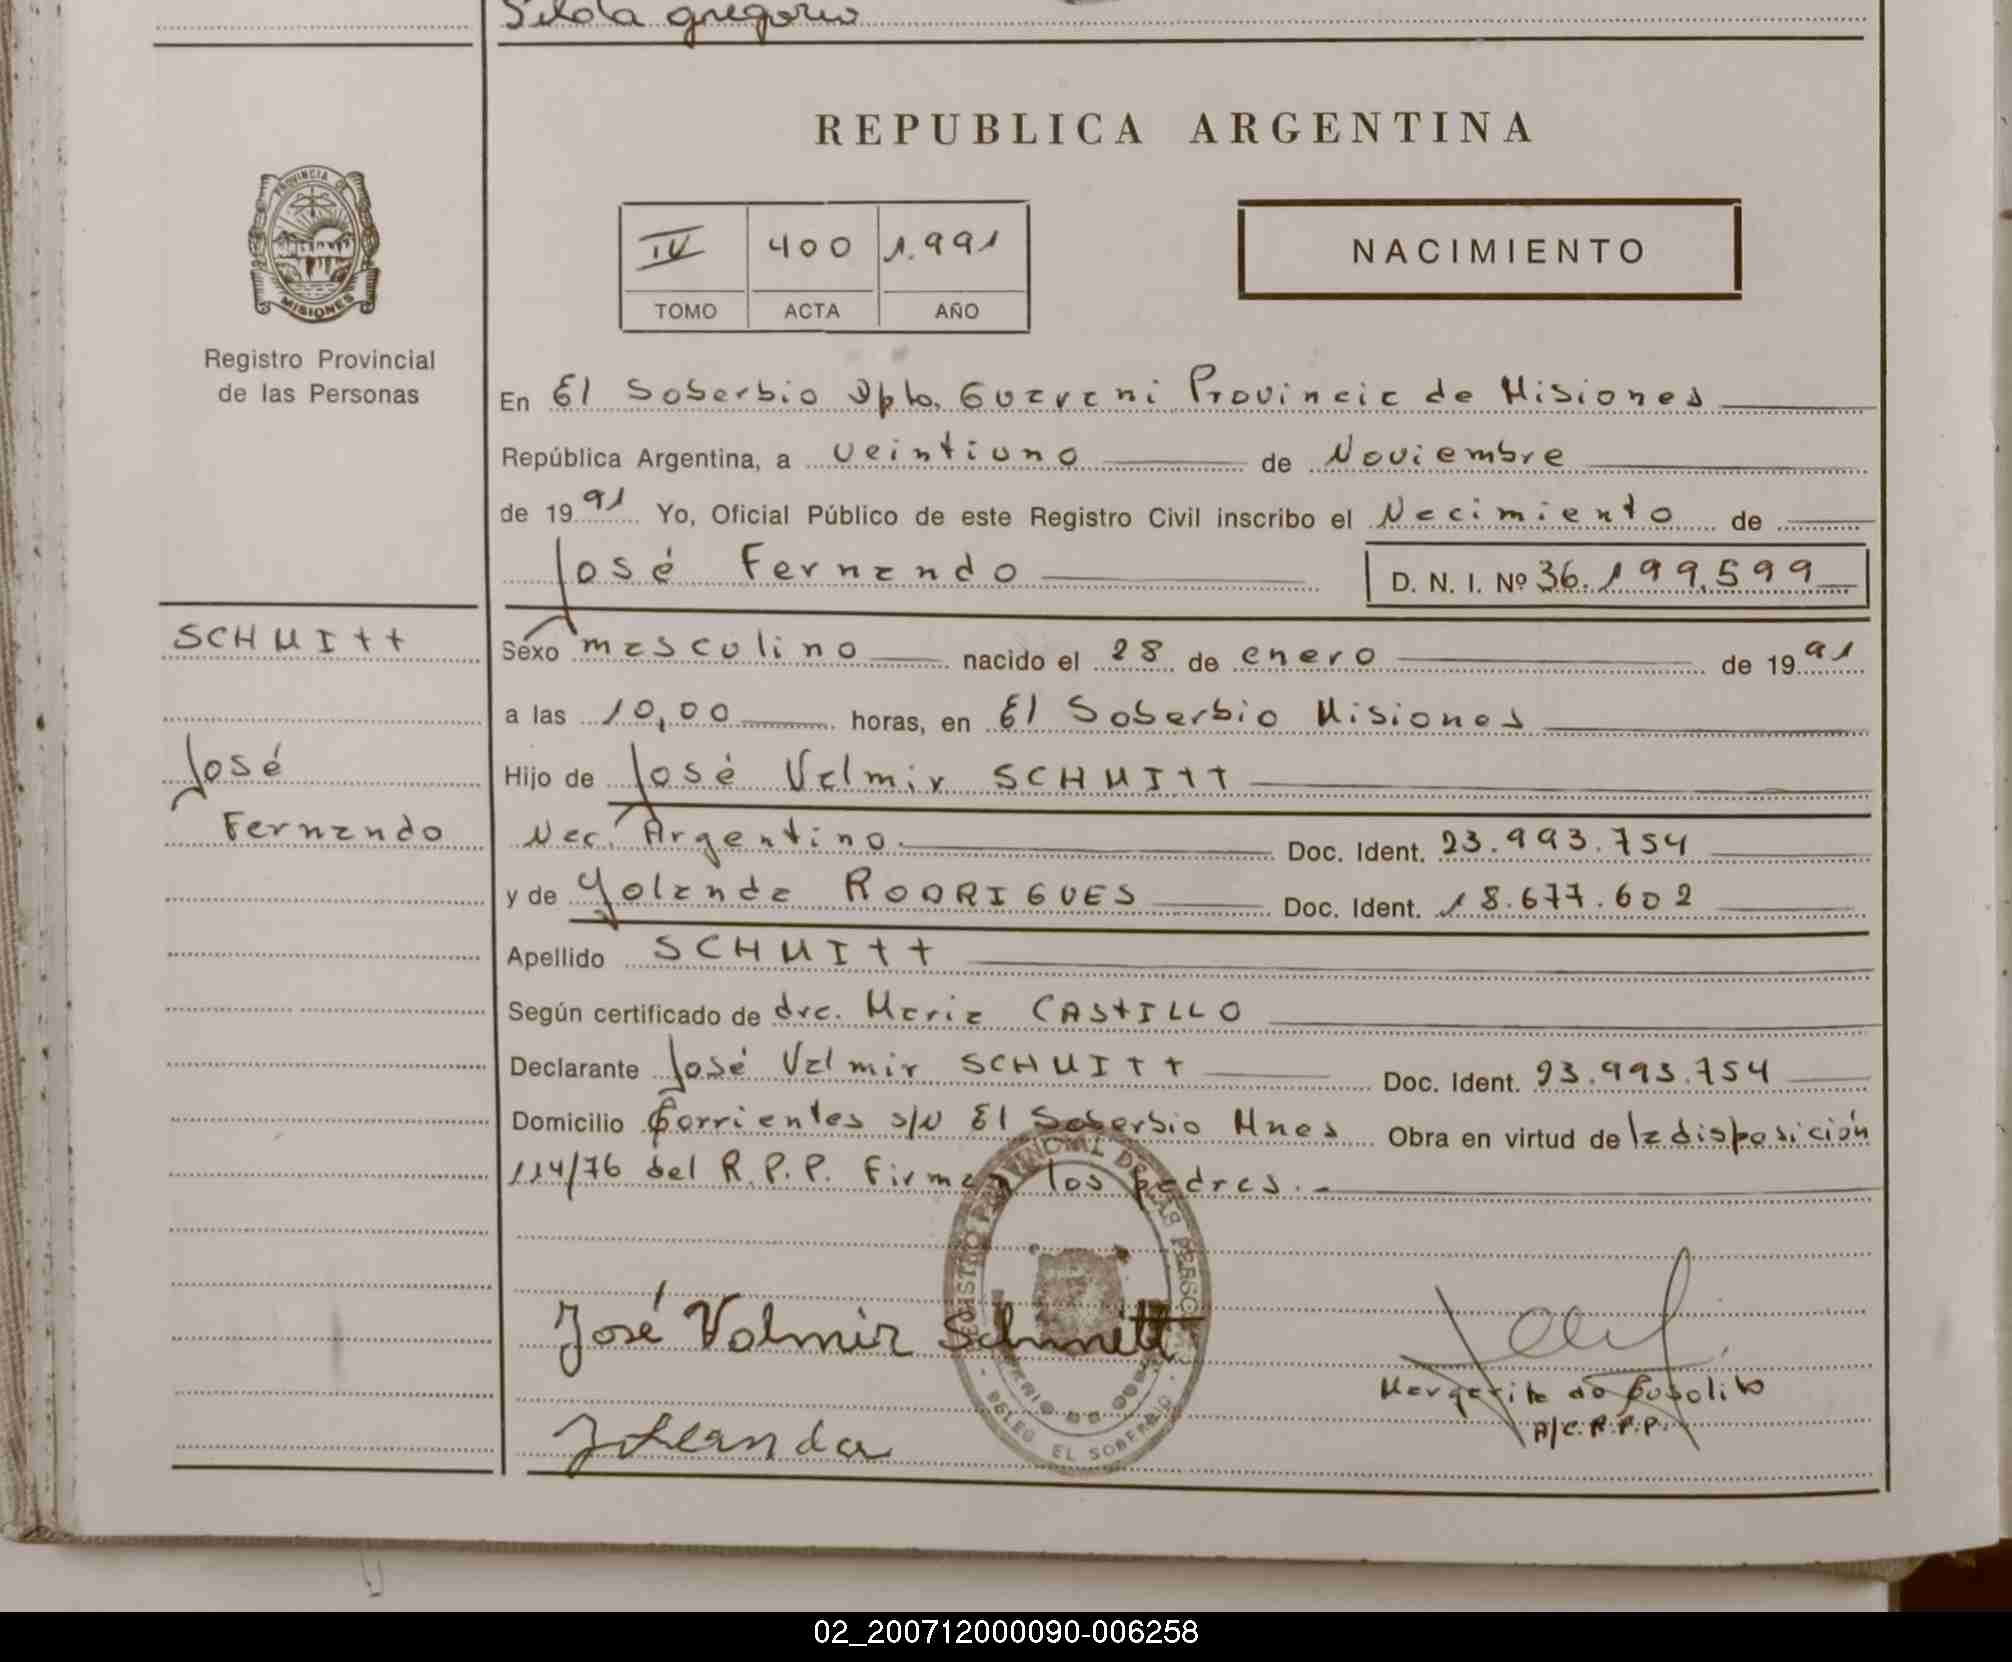 Silda gregorio
REPUBLICA ARGENTINA
PROVINCIA DE
MISIONES
IV 400 1.991
TOMO ACTA AÑO
NACIMIENTO
Registro Provincial
de las Personas
En El Soberbio Dpto. Guarani Provincia de Misiones
República Argentina, a veintiuno de Noviembre
de 1991 Yo, Oficial Público de este Registro Civil inscribo el Nacimiento de
José Fernando D. N. I. Nº 36.199.599
SCHMITT
José
Fernando
Sexo masculino nacido el 28 de enero de 1991
a las 10,00 horas, en El Soberbio Misiones
Hijo de José Valmir SCHMITT
Nac. Argentino. Doc. Ident. 23.993.754
y de Yolanda RODRIGUES Doc. Ident. 18.677.602
Apellido SCHMITT
Según certificado de dra. Maria CASTILLO
Declarante José Valmir SCHMITT Doc. Ident. 23.993.754
Domicilio Corrientes s/N El Soberbio Mnes Obra en virtud de la disposición
114/76 del R.P.P. Firman los padres.-
REGISTRO PROVINCIAL DE LAS PERSONAS
DELEG. EL SOBERBIO
José Valmir Schmitt
Margarita do
A/C.R.P.P.
02_200712000090-006258